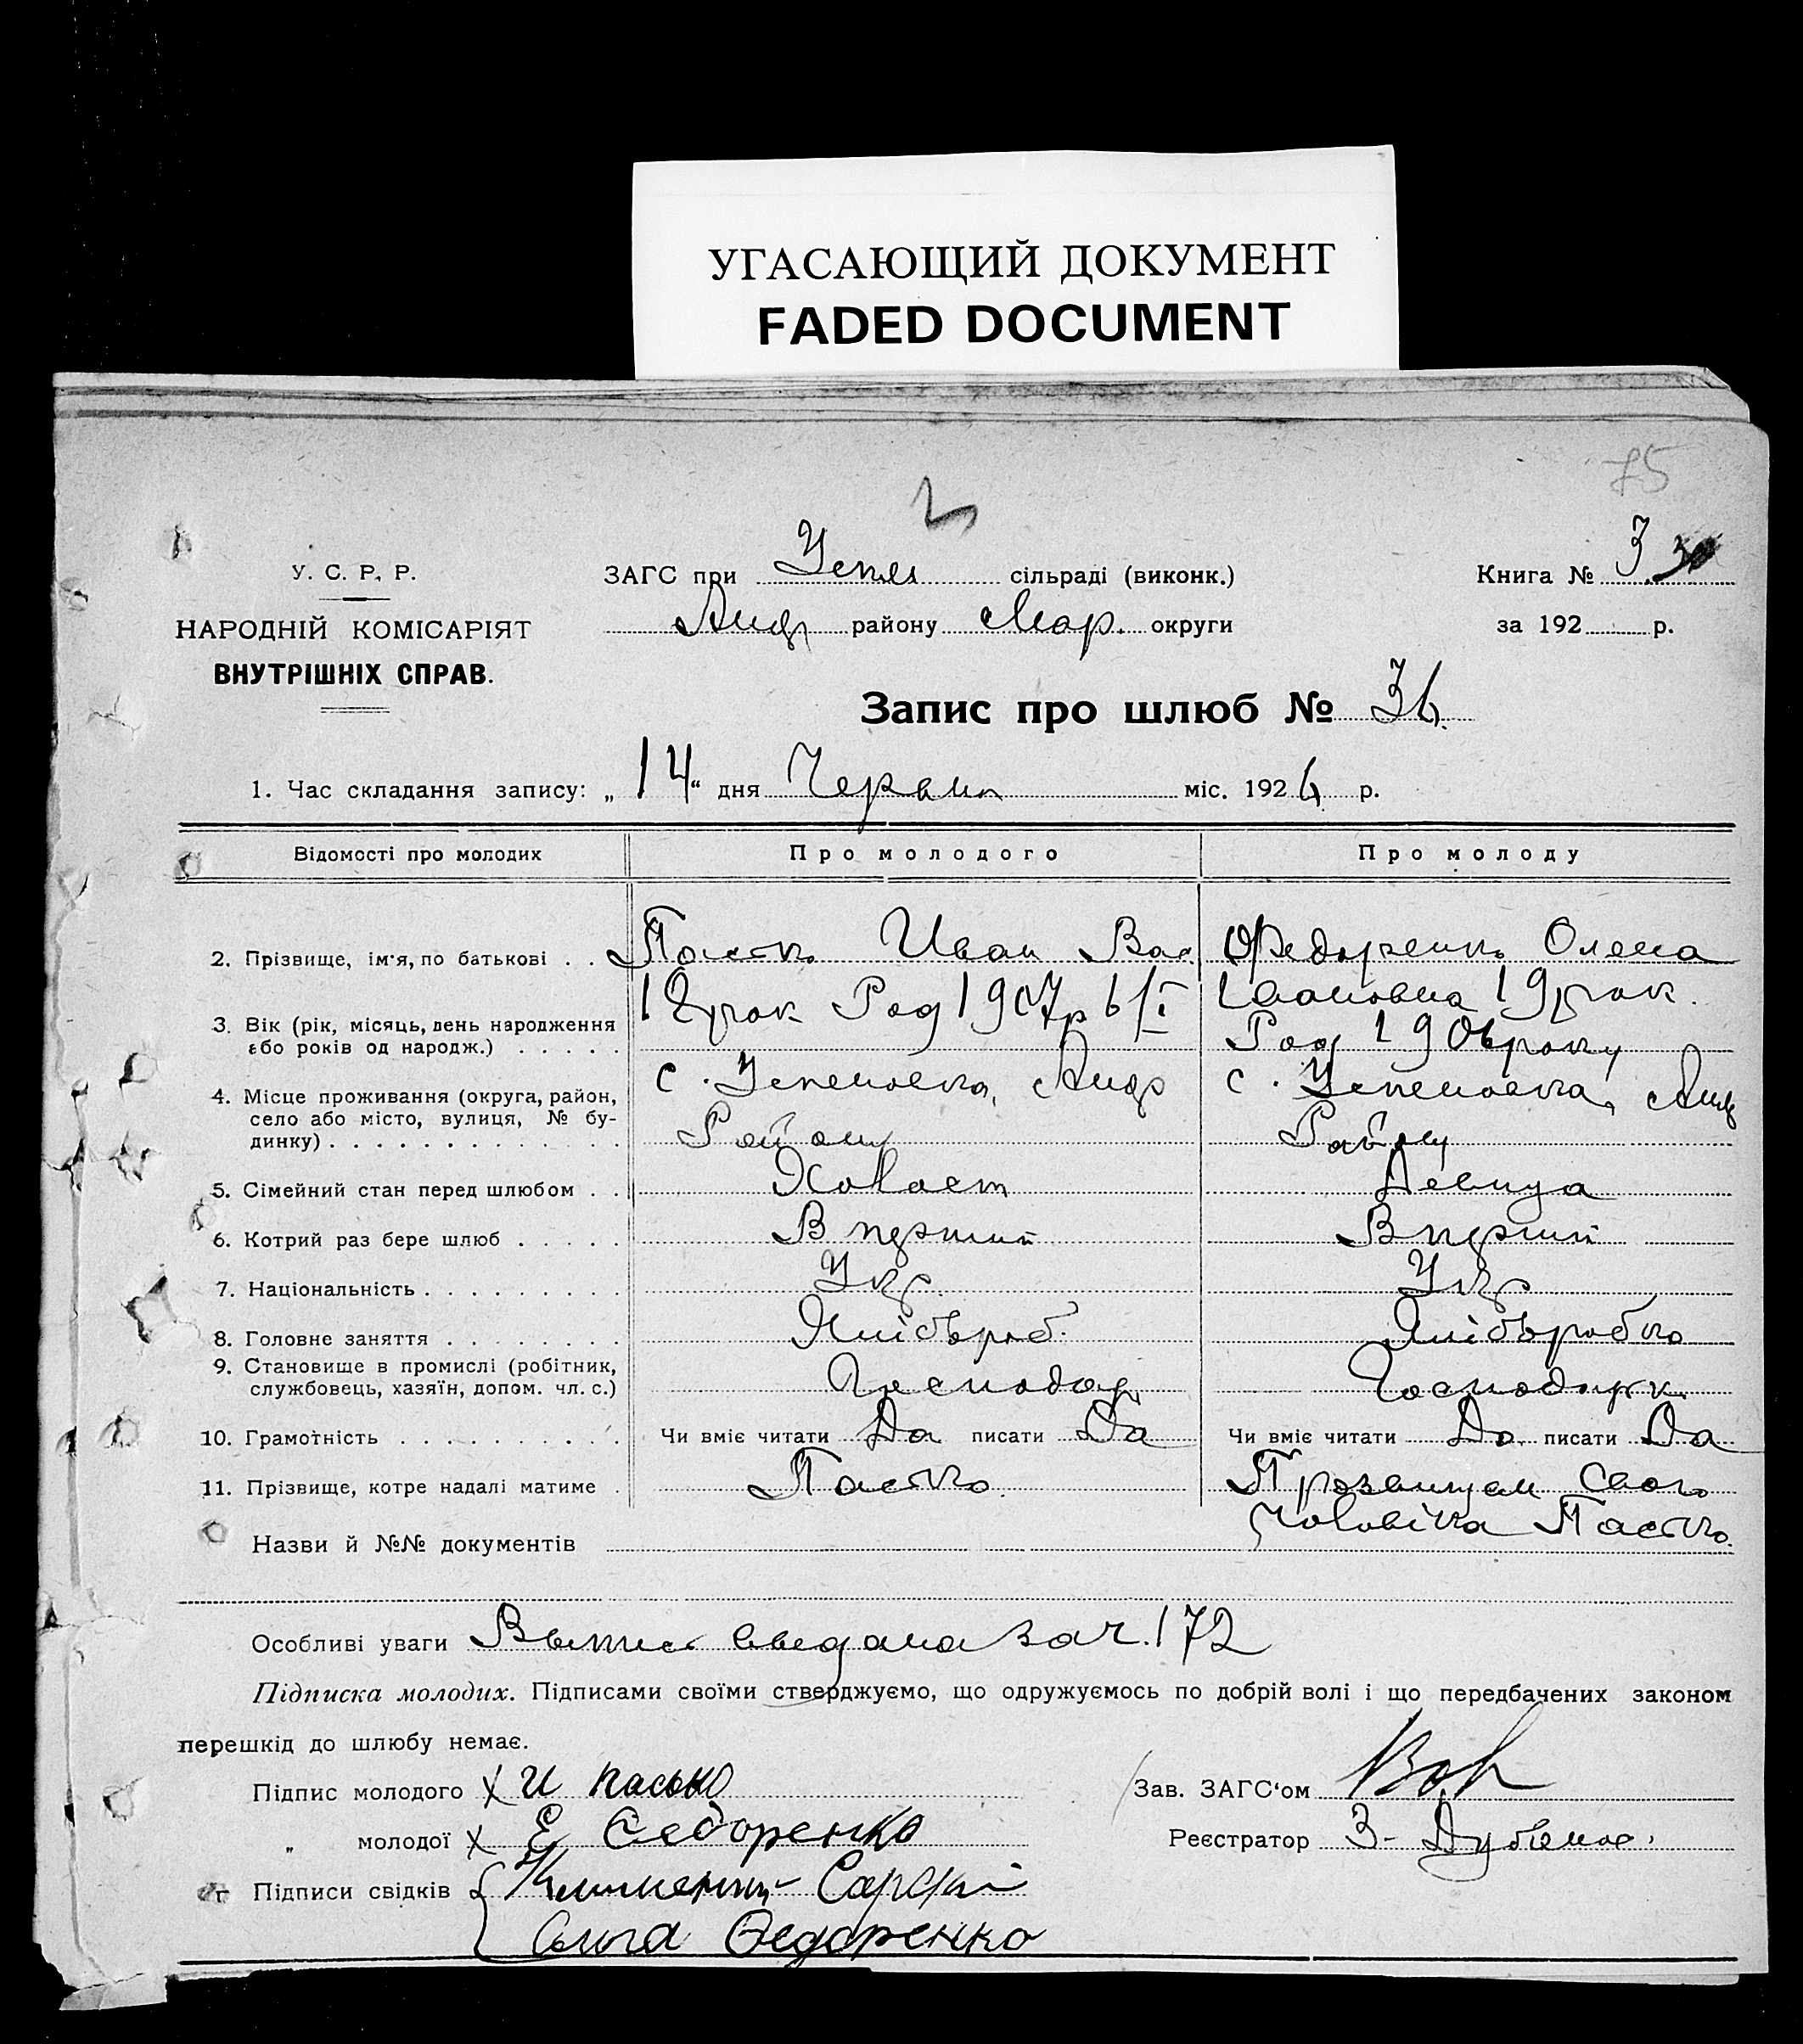 УГАСАЮЩИЙ ДОКУМЕНТ
FADED DOCUMENT
75
У. С. Р. Р.
НАРОДНІЙ КОМІСАРІЯТ
ВНУТРІШНІХ СПРАВ.
ЗАГС при сільраді (виконк.)
района Мар. округи
Книга № 3
за 192 р.
Запис про шлюб № 36
1. Час складання запису: „14“ дня Червня міс. 1926 р.
Відомості про молодих Про молодого Про молоду
2. Прізвище, ім'я, по батькові . . Пасько Иван Вас Федоренко Олена
Ивановна 19 рок.
3. Вік (рік, місяць, день народження
або років од народж.) . . . . . 19 рок Род 1907 р 6/I Род 1906 року
4. Місце проживання (округа, район,
село або місто, вулиця, № бу-
динку) . . . . . . . . . . . . с. Успеновка, Андр Району с. Успеновка, Анд Району
5. Сімейний стан перед шлюбом . . Холост Девица
6. Котрий раз бере шлюб . . . . . В перший В перший
7. Національність . . . . . . . . . Укр. Укр
8. Головне заняття . . . . . . . . Хлібороб. Хлібробка
9. Становище в промислі (робітник,
службовець, хазяїн, допом. чл. с.) Господар Господарк.
10. Грамотність . . . . . . . . . . Чи вміє читати Да писати Да Чи вміє читати Да писати Да
11. Прізвище, котре надалі матиме . Пасько. Прозвищем Свого
Чоловіка Пасько.
Назви й №№ документів
Особливі уваги за ч. 172
Підписка молодих. Підписами своїми стверджуємо, що одружуємось по добрій волі і що передбачених законом
перешкід до шлюбу немає.
Підпис молодого х И Пасько
Зав. ЗАГС'ом
„ молодої х Е Федоренко
Реєстратор З-
Підписи свідків
Ольга Федоренко